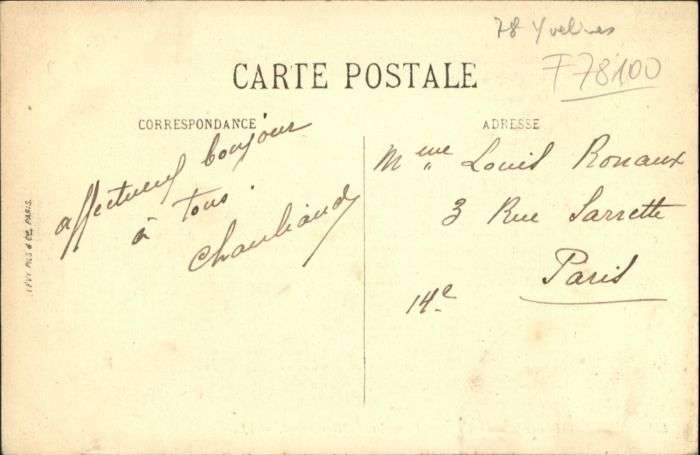 78 Yvelines
F78100
CARTE POSTALE
CORRESPONDANCE
ADRESSE
affectueux bonjour
à tous.
Mme Louis
3 Rue Sarrette
Paris
14e
LÉVY FILS & Cie, PARIS